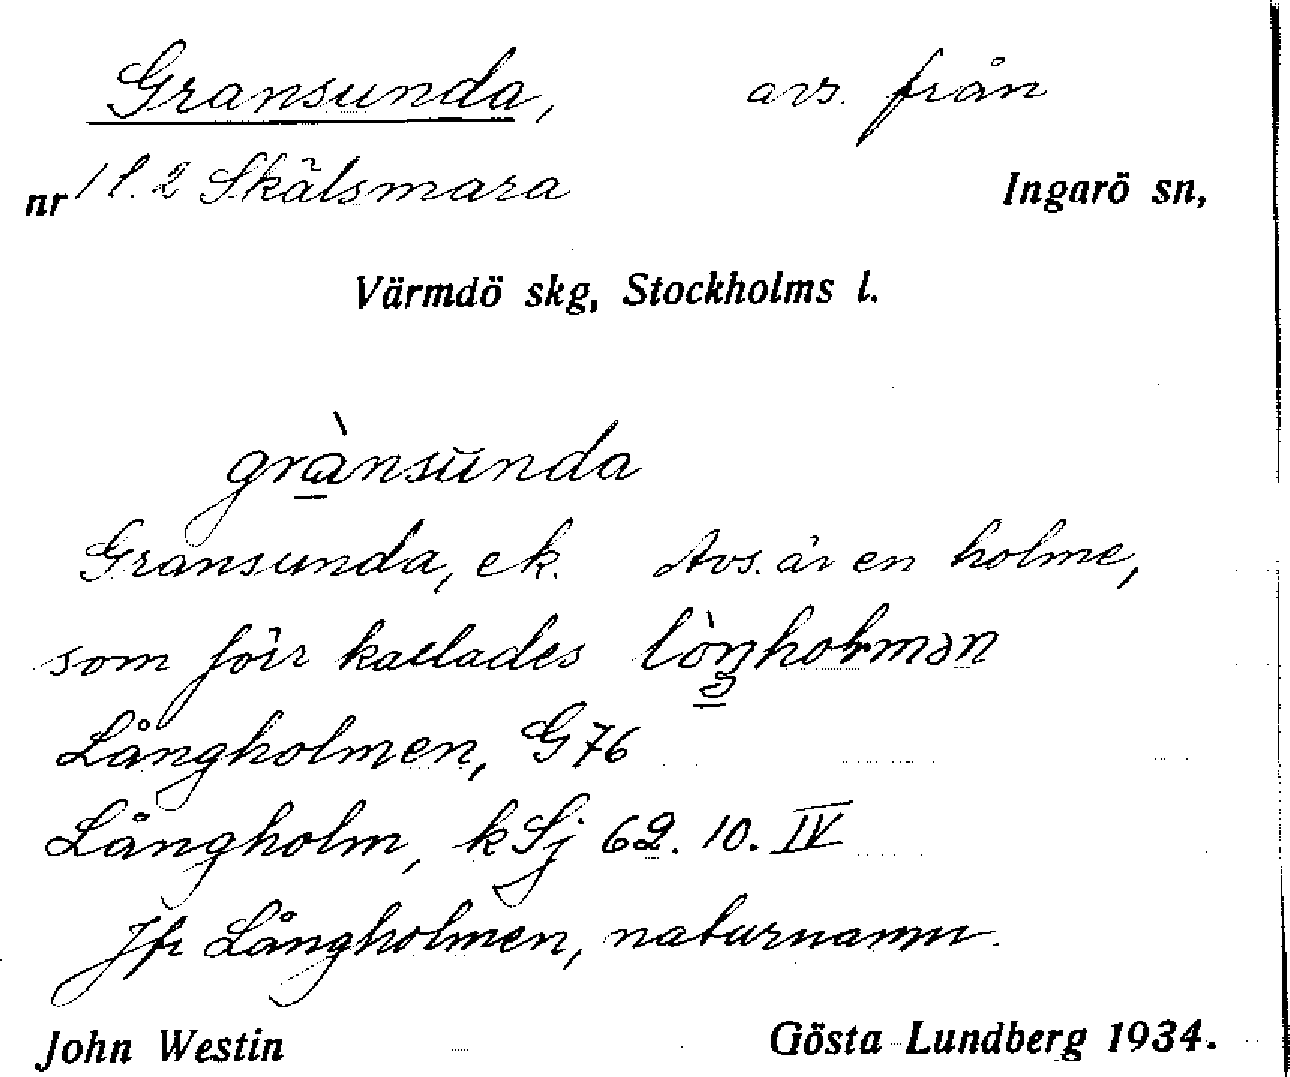 Gransunda, avs. från
nr 1 l. 2 Skälsmara Ingarö sn,
Värmdö skg, Stockholms l.
grànsŭnda
Gransunda, ek. Avs. är en holme,
som förr kallades lòŋholmən
Långholmen, G 76
Långholm, k Sj 62. 10. IV
Jfr Långholmen, naturnamn.
John Westin Gösta Lundberg 1934.